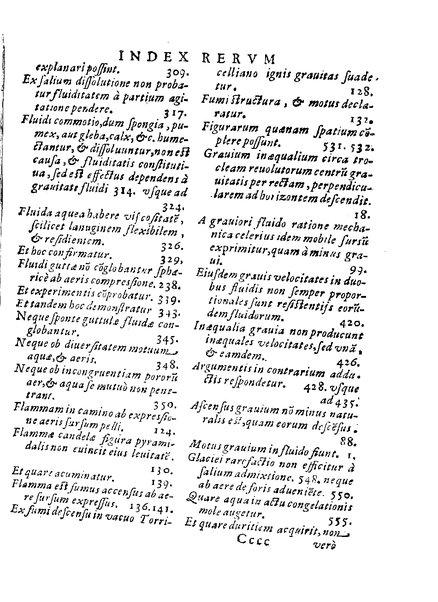 INDEX RERVM
explanari possint. 309.
Ex salium dissolutione non proba-
tur fluiditatem à partium agi-
tatione pendere. 317.
Fluidi commotio, dum spongia, pu-
mex, aut gleba, calx, &c. hume-
ctantur, & dissoluuntur, non est
causa, & fluiditatis constituti-
ua, sed est effectus dependens à
grauitate fluidi 314. vsque ad
324.
Fluida aquea habere viscositatē,
scilicet lanuginem flexibilem,
& residentem. 326.
Et hoc confirmatur. 329.
Fluidi guttæ nō cōglobantur sphæ-
ricè ab aeris compressione. 238.
Et experimentis cōprobatur. 339.
Et tandem hoc demonstratur 343.
Neque sponte guttulæ fluidæ con-
globantur. 345.
Neque ob diuersitatem motuum
aquæ, & aeris. 348.
Neque ob incongruentiam pororū
aer, & aqua se mutuò non pene-
trant. 350.
Flammam in camino ab expressio-
ne aeris sursum pelli. 124.
Flammæ candelæ figura pyrami-
dalis non euincit eius leuitatē.
130.
Et quare acuminatur. 139.
Flamma est fumus accensus ab ae-
re sursum expressus. 136.141.
Ex fumi descensu in vacuo Torri-
celliano ignis grauitas suade
tur. 128.
Fumi structura, & motus decla-
ratur. 132.
Figurarum quænam spatium cō-
plere possunt. 531. 532.
Grauium inæqualium circa tro-
cleam reuolutorum centrū gra-
uitatis per rectam, perpendicu-
larem ad horizontem descendit.
18.
A grauiori fluido ratione mecha-
nica celerius idem mobile sursū
exprimitur, quam à minus gra-
ui. 99.
Eiusdem grauis velocitates in duo-
bus fluidis non semper propor-
tionales sunt resistentijs eorū-
dem fluidorum. 420.
Inæqualia grauia non producunt
inæquales velocitates, sed vnā,
& eamdem.
Argumentis in contrarium addu-
ctis respondetur. 428. vsque
ad 435.
Ascensus grauium nō minus natu-
ralis est, quam eorum descēsus.
88.
Motus grauium in fluido fiunt. 1.
Glaciei rarefactio non efficitur à
salium admixtione. 548. neque
ab aere de foris adueniēte. 550.
Quare aqua in actu congelationis
mole augetur. 555.
Et quare duritiem acquirit, non
Cccc verò